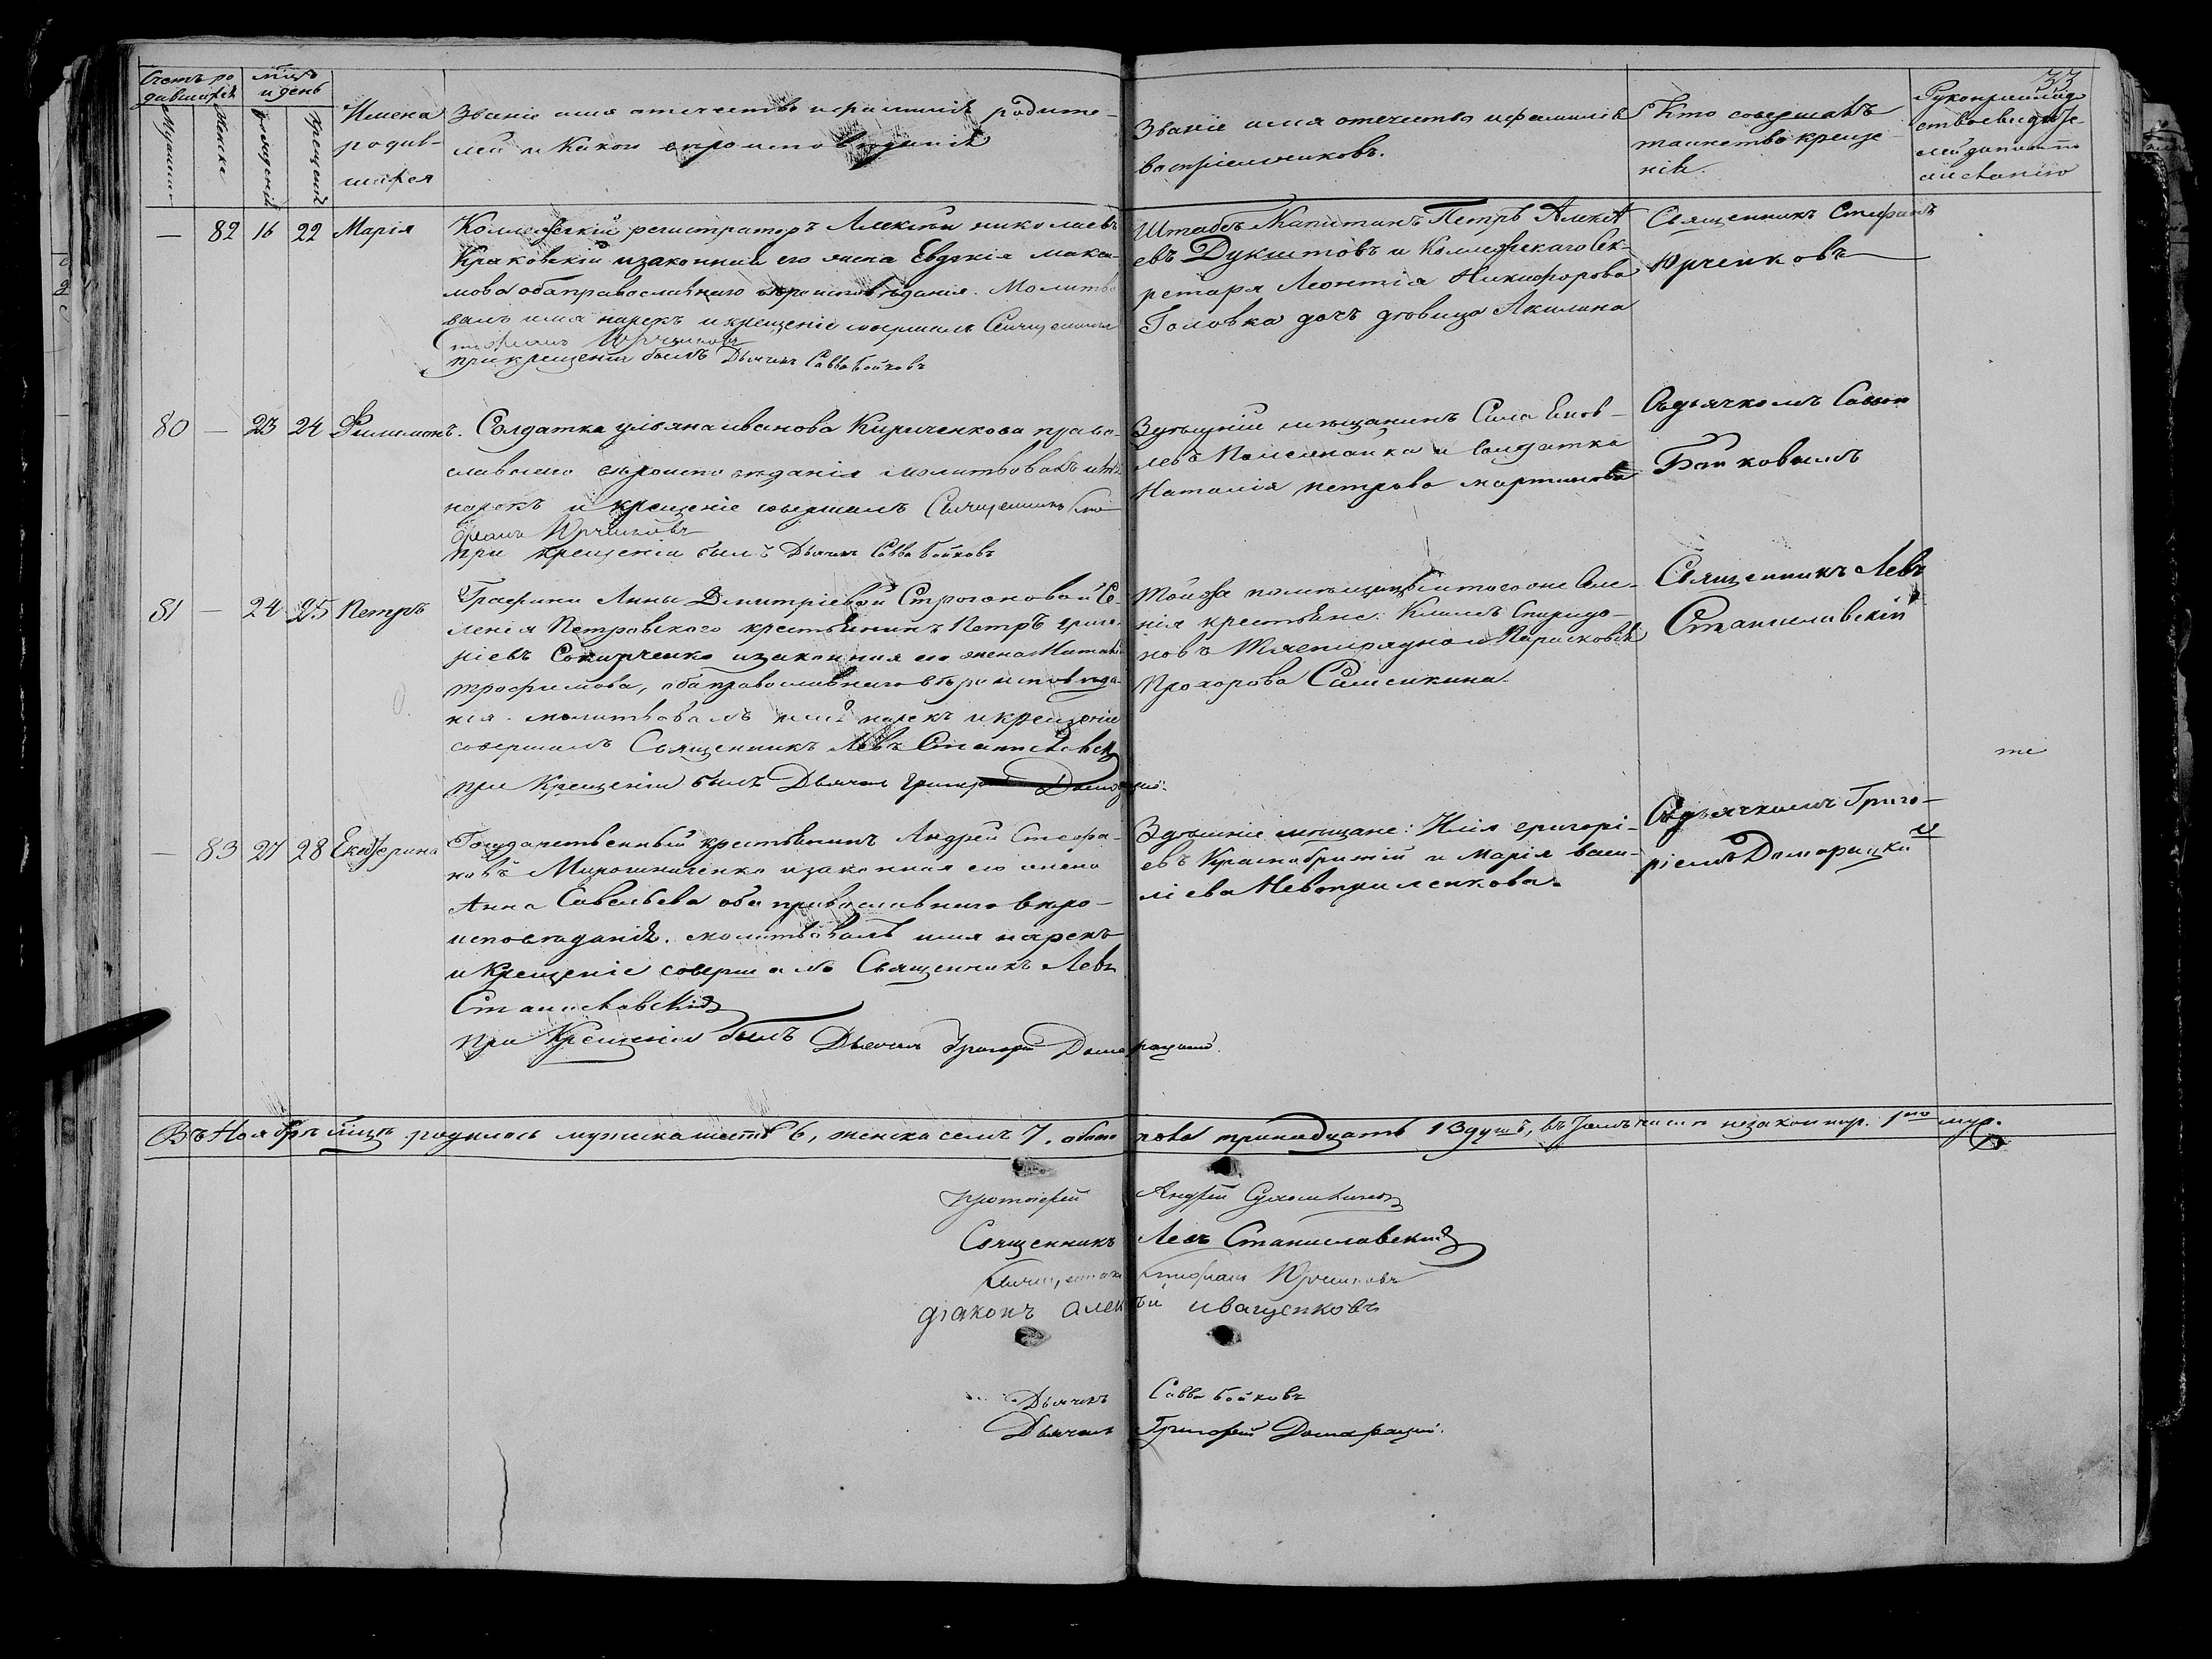 33
Счетъ ро
дившихся
мцъ
и день
Мужска
Женска
рожденія
крещенія
Имена
родив-
шихся
Званіе имя отечество и фамилія родите-
лей и какого вѣроисповѣданія
Званіе имя отечество и фамилія
воспріемниковъ.
Кто совершалъ
таинство креще
нія.
Рукоприклад
ство свидѣте-
лей
— 82 16 22 Марія
Коллежскій регистраторъ Алексѣй николаевъ
Краковскій и законная его жена Евдокія макси
мова оба православнаго вѣроисповѣданія. Молитво
валъ имя нарекъ и крещеніе совершалъ Священникъ
Стефанъ Юрченковъ
при крещеніи былъ Дьячекъ Савва Бойковъ
Штабсъ Капитанъ Петръ Алексѣ
евъ Дукштовъ и Коллежскаго Сек-
ретаря Леонтія Никифорова
Головка дочь дѣвица Акилина
Священникъ Стефанъ
Юрченковъ
80 — 23 24 Филимонъ.
Солдатка ульяна иванова Кириченкова право-
славнаго вѣроисповѣданія молитвовалъ имя
нарекъ и крещеніе совершалъ Священникъ Сте
фанъ Юрченковъ
при крещеніи былъ Дьячекъ Савва Бойковъ
Здѣшній мѣщанинъ Сила
левъ и Солдатка
Наталія петрова мартинова
Съ дьячкомъ Саввою
Бойковымъ
81 — 24 25 Петръ
Графини Анны Дмитріевой Строгоновой Се-
ленія Петровского крестьянинъ Петръ григо
ріевъ Сокирченко и законная его жена Наталія
трофимова, оба православнаго вѣроисповѣда
нія. молитвовалъ имя нарекъ и крещеніе
совершалъ Священникъ Левъ Станиславскій
при Крещеніи былъ Дьячекъ Григорій Домарацкій.
Той же помѣщицы и того же Селе-
нія крестьяне: Климъ Спиридо-
новъ и Парасковія
Прохорова Семенкина.
Священникъ Левъ
Станиславскій
— 83 27 28 Екатерина
Государственный крестьянинъ Андрей Стефа-
новъ Мирошниченко и законная его жена
Анна Савельева оба православнаго вѣро-
исповѣданія. молитвовалъ имя нарекъ
и Крещеніе совершалъ Священникъ Левъ
Станиславскій
при Крещеніи былъ Дьячекъ Григорій Домарацкій.
Здѣшніе мѣщане: Илія григорі-
евъ Краснобритій и Марія васи-
ліева
Съ дьячкомъ Григо-
ріемъ Домарацкимъ
Въ Ноябрѣ мцѣ родилось мужска шесть 6, женска семь 7. обоего пола тринадцать 13 душъ, въ томъ числѣ незаконнор. 1 муж.
протоіерей Андрей
Священникъ Левъ Станиславскій
Священникъ Стефанъ Юрченковъ
діаконъ алексѣй иващенковъ
Дьячекъ Савва Бойковъ
Дьячекъ Григорій Домарацкій.